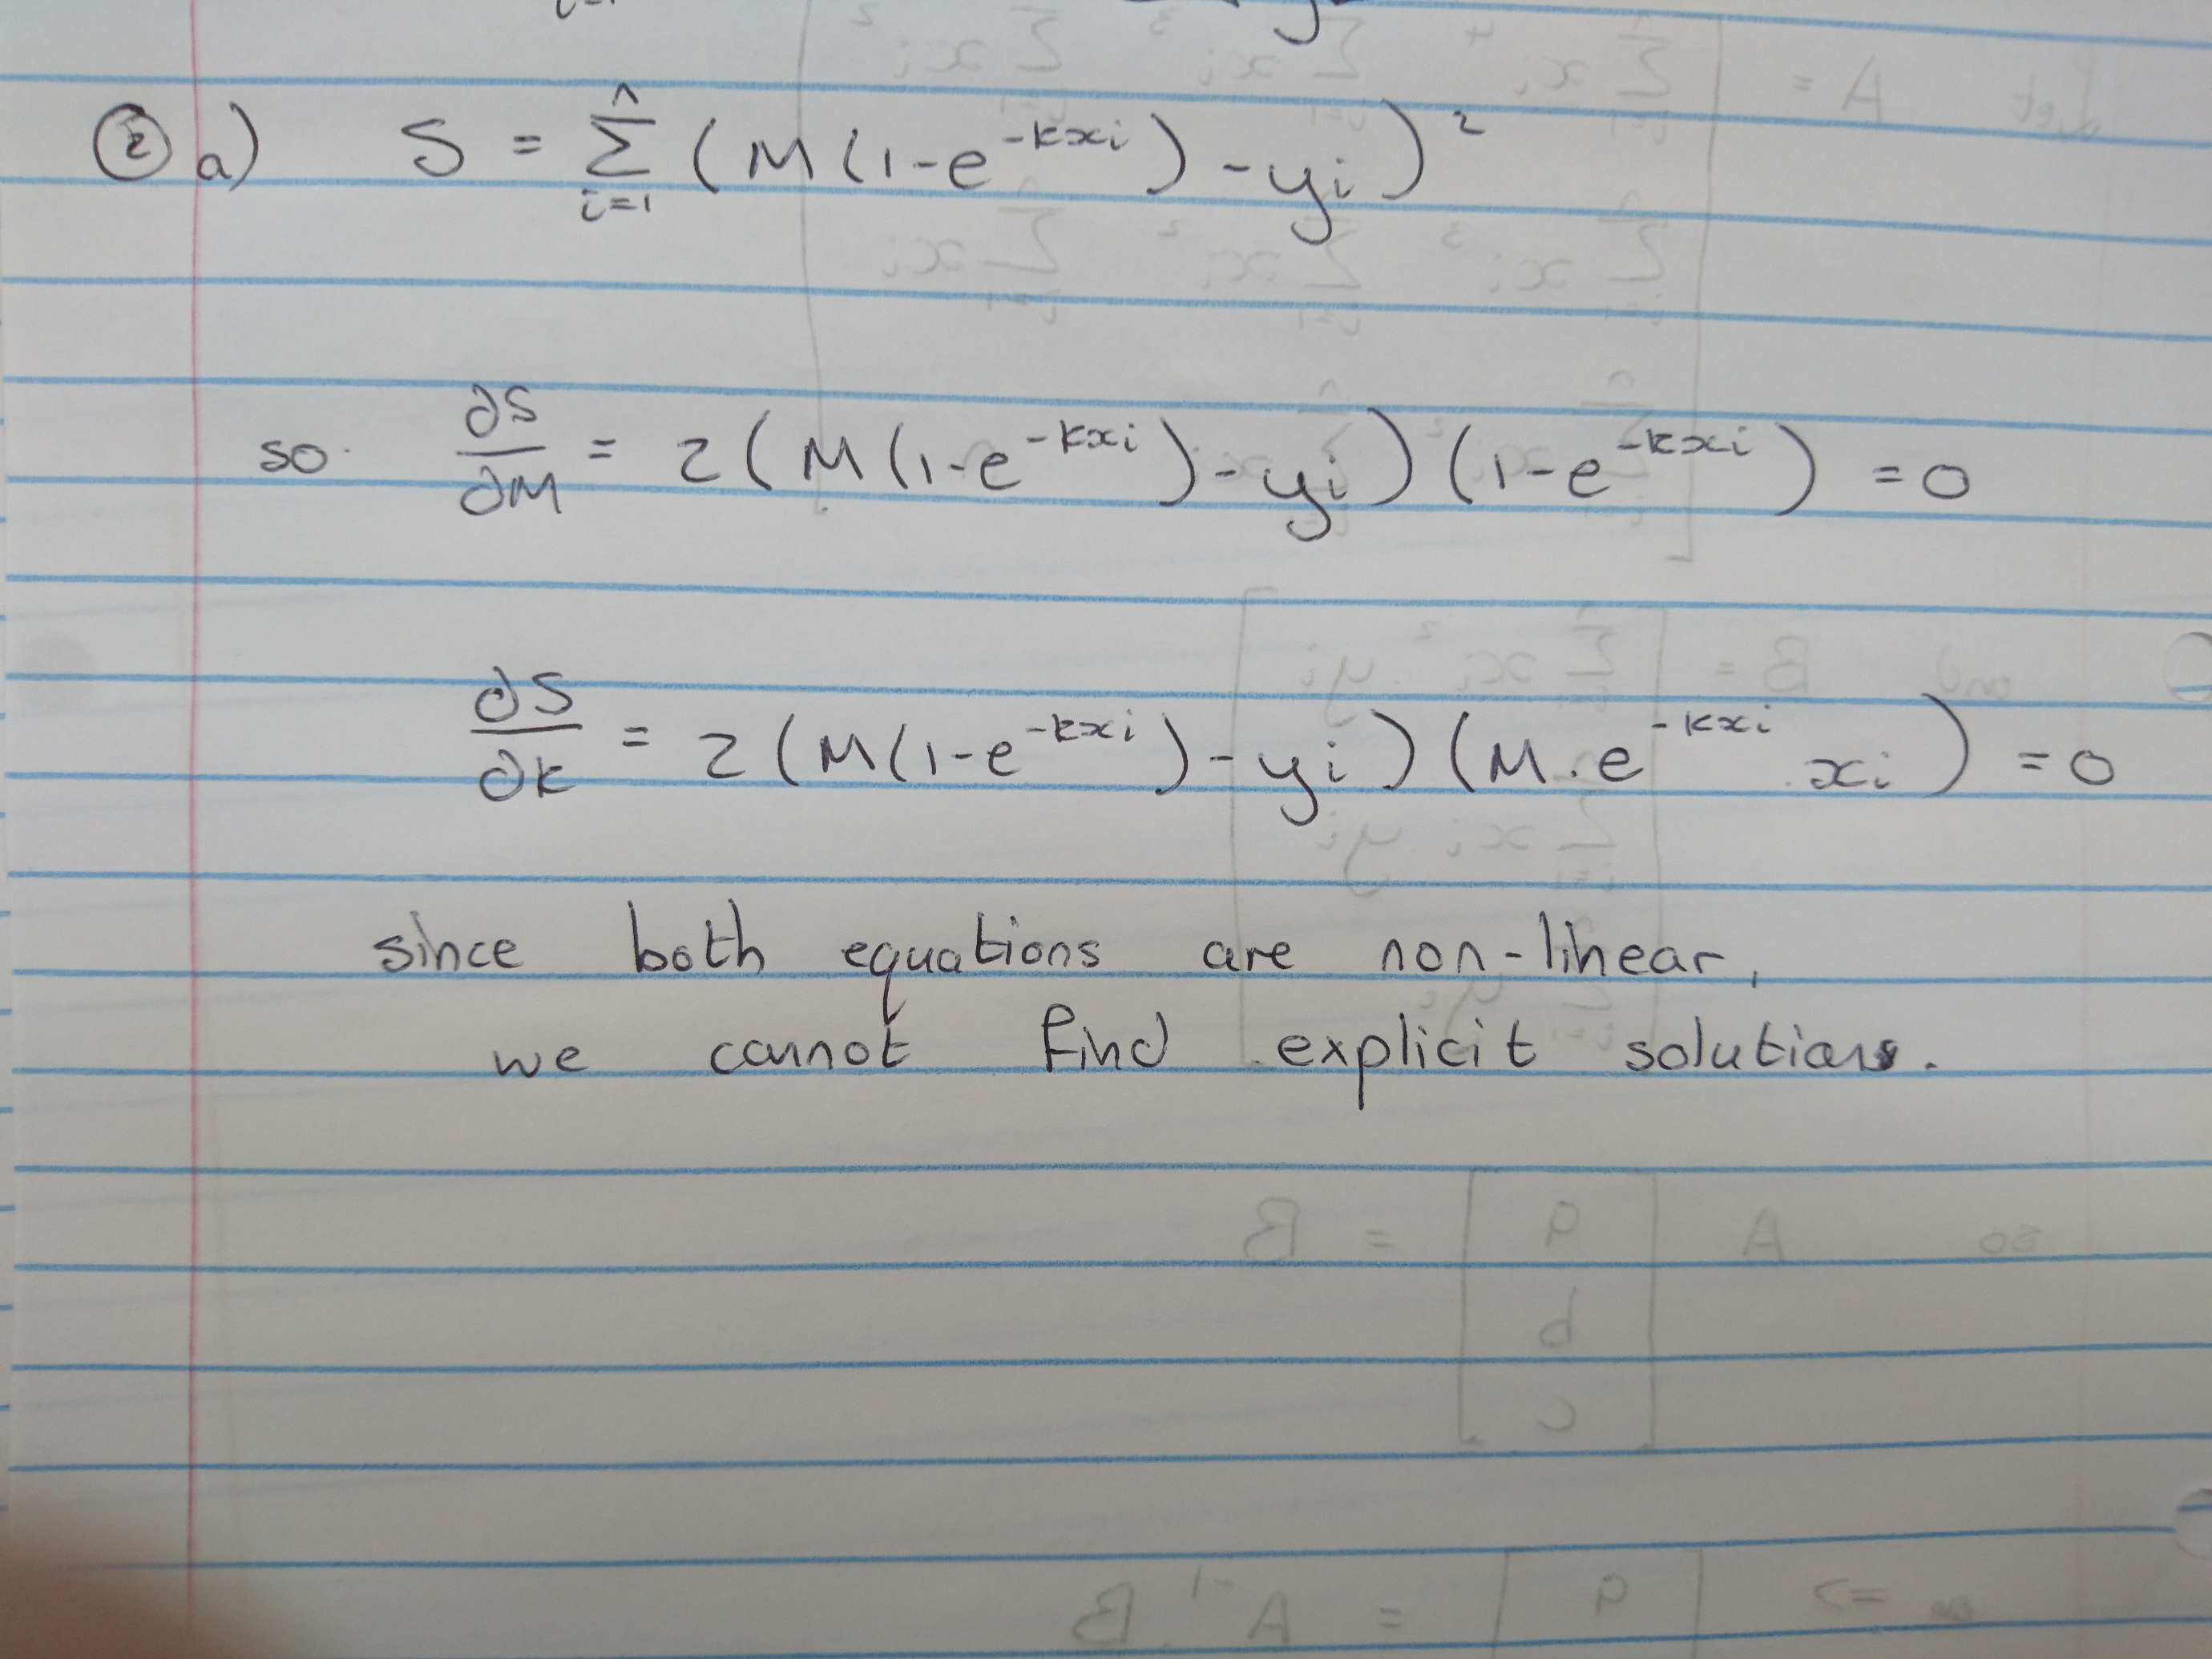 ② a) S = Σ_{i=1}^{n} (M(1-e^{-kxi}) - yi)²
so ∂S/∂M = 2(M(1-e^{-kxi}) - yi)(1-e^{-kxi}) = 0
∂S/∂k = 2(M(1-e^{-kxi}) - yi)(M.e^{-kxi}.xi) = 0
since both equations are non-linear,
we cannot find explicit solutions.